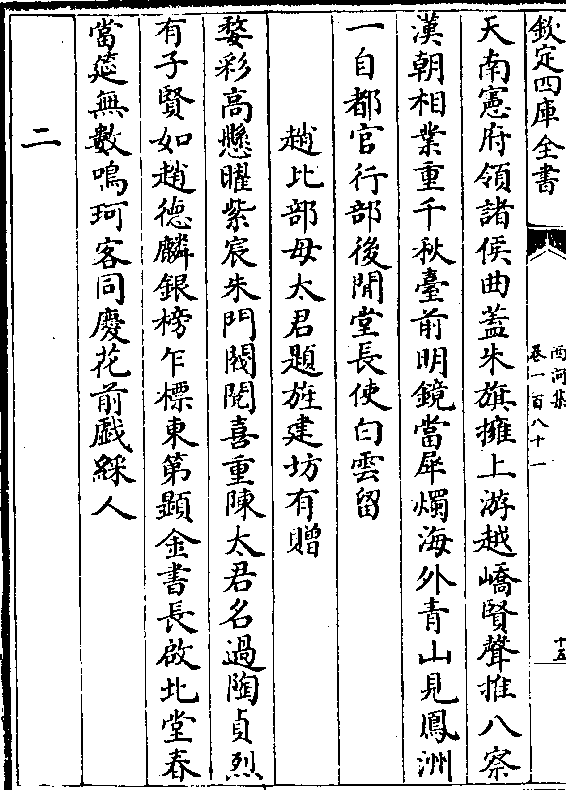 欽定四庫全書
西河集
卷一百八十一
十五
天南憲府領諸侯曲蓋朱旗擁上游越嶠賢聲推八察
漢朝相業重千秋臺前明鏡當犀燭海外青山見鳳洲
一自都官行部後閒堂長使白雲留
趙比部母太君題旌建坊有贈
婺彩高懸曜紫宸朱門閥閱喜重陳太君名過陶貞烈
有子賢如趙德麟銀榜乍標東第顯金書長啟北堂春
當筵無數鳴珂客同慶花前戲綵人
二